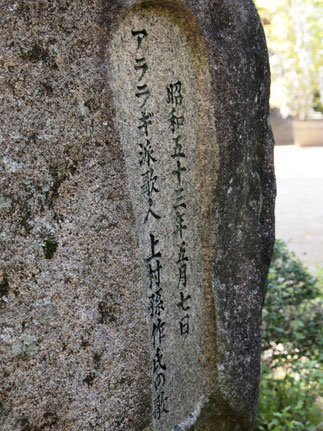 昭和五十三年五月七日
アララギ派歌人上村孫作氏の歌